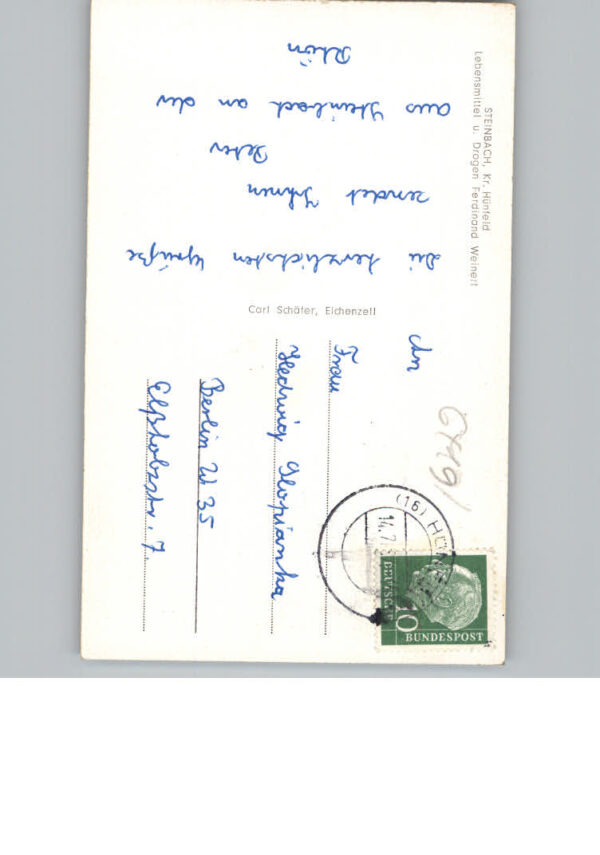 STEINBACH, Kr. Hünfeld
Lebensmittel u. Drogen Ferdinand Weinert
Die herzlichsten Grüße
sendet Ihnen
Peter
aus Steinbach an der
Rhön
Carl Schäfer, Eichenzell
An
Frau
Hedwig Slopianka
Berlin W 35
Elßholzstr. 7.
(16) HÜNFELD
14.7.
DEUTSCHE
10
BUNDESPOST